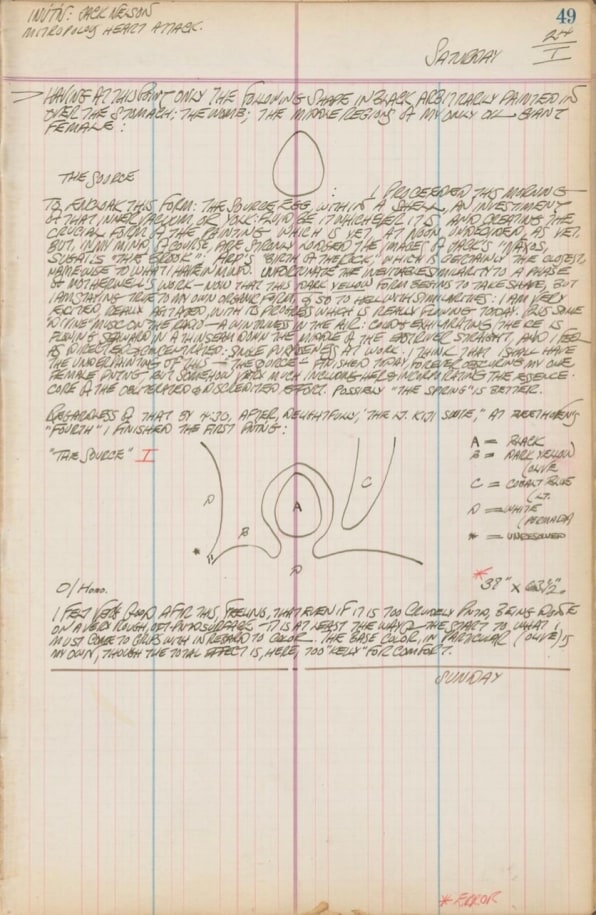 INV'TN: JACK NELSON
METROPOLIS HEART ATTACK.
49
SATURDAY
24
I
HAVING AT THIS POINT ONLY THE FOLLOWING SHAPE IN BLACK ARBITRARILY PAINTED IN
OVER THE STOMACH: THE WOMB; THE MIDDLE REGIONS OF MY ONLY OIL GIANT
FEMALE:
THE SOURCE
: I PROCEEDED THIS MORNING
TO THIS FORM: THE SOURCE EGG, WITHIN A SHELL, AN INVESTMENT
OF THAT INNER VACUUM, OR YOLK: FLUID BE IT WHICHEVER IT IS AND CREATING THE
CRUCIAL FORM OF THE PAINTING WHICH IS YET, AT NOON, UNDECIDED, AS YET,
BUT, IN MY MIND OF COURSE, ARE STRONGLY THE IMAGES OF
"THE BROOK"; ARP'S "BIRTH OF THE ROCK", WHICH IS CERTAINLY THE CLOSEST,
NAMEWISE TO WHAT I HAVE IN MIND. UNFORTUNATE THE INEVITABLE SIMILARITY TO A PHASE
OF MOTHERWELL'S WORK - NOW THAT THIS DARK YELLOW FORM BEGINS TO TAKE SHAPE, BUT
I AM STAYING TRUE TO MY OWN ORGANIC FORM, & SO TO HELL WITH SIMILARITIES: I AM VERY
EXCITED, REALLY AGITATED, WITH ITS PROGRESS WHICH IS REALLY FLOWING TODAY. PLUS SOME
DIVINE MUSIC ON THE RADIO - A WINDINESS IN THE AIR: COLD & EXHILARATING THE ICE IS
FLOWING SEAWARD IN A THIN SEAM DOWN THE MIDDLE OF THE EAST RIVER STRAIGHT, AND I FEEL
AS DIRECTED & CONCENTRATED: SINGLE PURPOSENESS AT WORK. I THINK THAT I SHALL HAVE
THE UNDERPAINTING OF THIS - THE SOURCE - FINISHED TODAY, FOREVER OBSCURING MY ONE
FEMALE PNTNG: BUT SOMEHOW VERY MUCH INCLUDING HER & INCORPORATING THE ESSENCE:
CORE OF THE OBLITERATED & DISCREDITED EFFORT. POSSIBLY "THE SPRING" IS BETTER.
REGARDLESS OF THAT BY 4:30, AFTER, DELIGHTFULLY, THE "LT. KIJE SUITE," AT BEETHOVENS
"FOURTH" I FINISHED THE FIRST PNTNG:
"THE SOURCE" I
A = BLACK
B = DARK YELLOW
(OLIVE
C = COBALT BLUE
(LT.
D = WHITE
(PERMALBA)
* = UNRESOLVED
D
B
A
C
*
D
* 38" X 63½".
O/HOMO.
I FELT VERY GOOD AFTR THIS, FEELING, THAT EVEN IF IT IS TOO CRUDELY PNTD, BEING DONE
ON A VERY ROUGH, OFT-PNTD SURFACE - IT IS AT LEAST THE WAY & THE START TO, WHAT I
MUST COME TO GRIPS WITH IN REGARD TO COLOR. THE BASE COLOR, IN PARTICULAR (OLIVE) IS
MY OWN, THOUGH THE TOTAL EFFECT IS, HERE, TOO "KELLY" FOR COMFORT.
SUNDAY
* ERROR